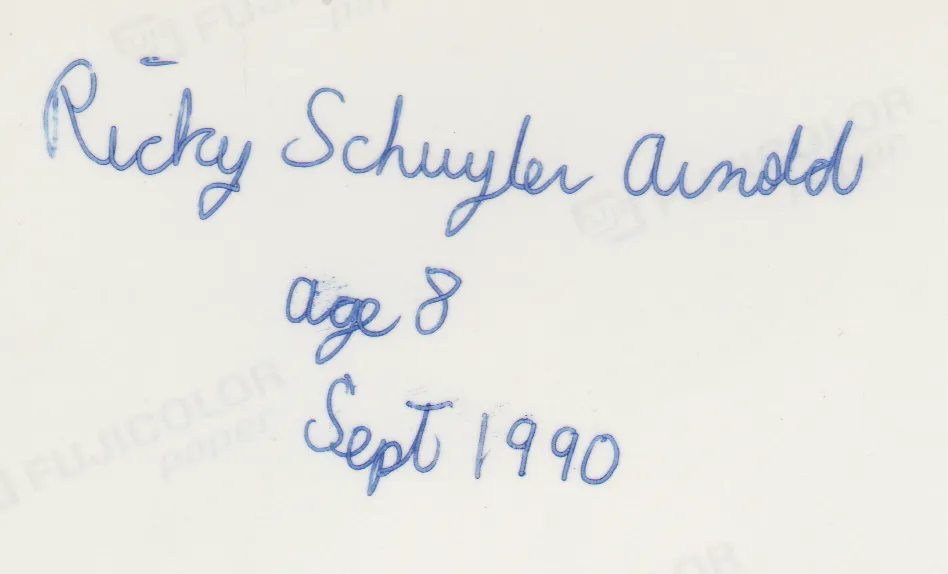 Ricky Schuyler Arnold
age 8
Sept 1990
FUJICOLOR
paper
FUJICOLOR
paper
FUJICOLOR
paper